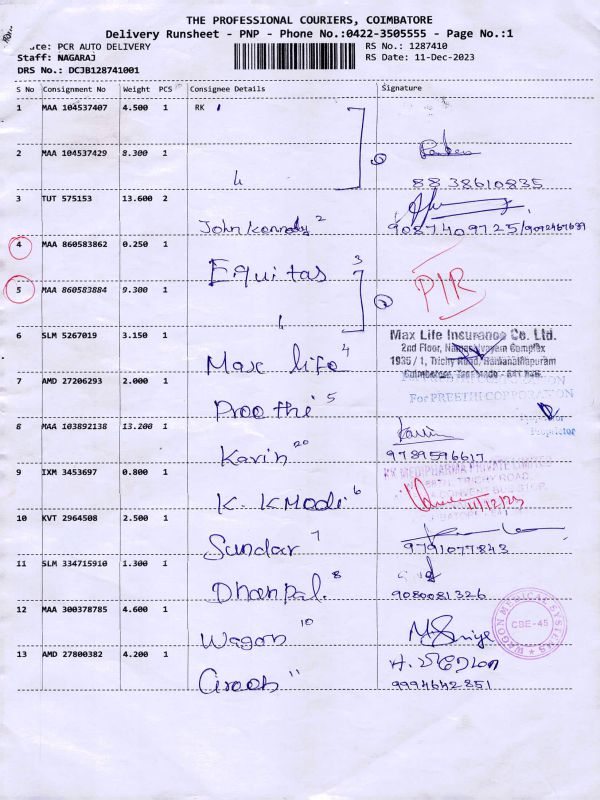 THE PROFESSIONAL COURIERS, COIMBATORE
Delivery Runsheet - PNP - Phone No.:0422-3505555 - Page No.:1
PCR AUTO DELIVERY
RS No.: 1287410
Staff: NAGARAJ
RS Date: 11-Dec-2023
DRS No.: DCJB128741001
S No Consignment No Weight PCS Consignee Details Signature
1 MAA 104537407 4.500 1 RK
2 MAA 104537429 8.300 1
8838610835
3 TUT 575153 13.600 2
John Kennedy 2 9087409725/9092467639
4 MAA 860583862 0.250 1
Equitas 3
5 MAA 860583884 9.300 1 PIR
6 SLM 5267019 3.150 1 Max Life Insurance Co. Ltd.
2nd Floor, Complex
Max life 4 1935 / 1, Trichy Road, Ramanathapuram
7 AMD 27206293 2.000 1 CORPORATION
For PREETHI CORPORATION
Preethi 5
Proprietor
8 MAA 103892138 13.200 1
Kavin 20 9789596617
9 IXM 3453697 0.800 1 MEDIPHARMA PRIVATE LIMITED
TRICHY ROAD
K. K Modi 6 11/12/23
10 KVT 2964508 2.500 1
Sundar 7 9791077843
11 SLM 334715910 1.300 1
Dhanpal. 8 9080081326
12 MAA 300378785 4.600 1 WAGON MEDICAL SYSTEMS
CBE-45
Wagon 10
13 AMD 27800382 4.200 1
Green 11 9994642851